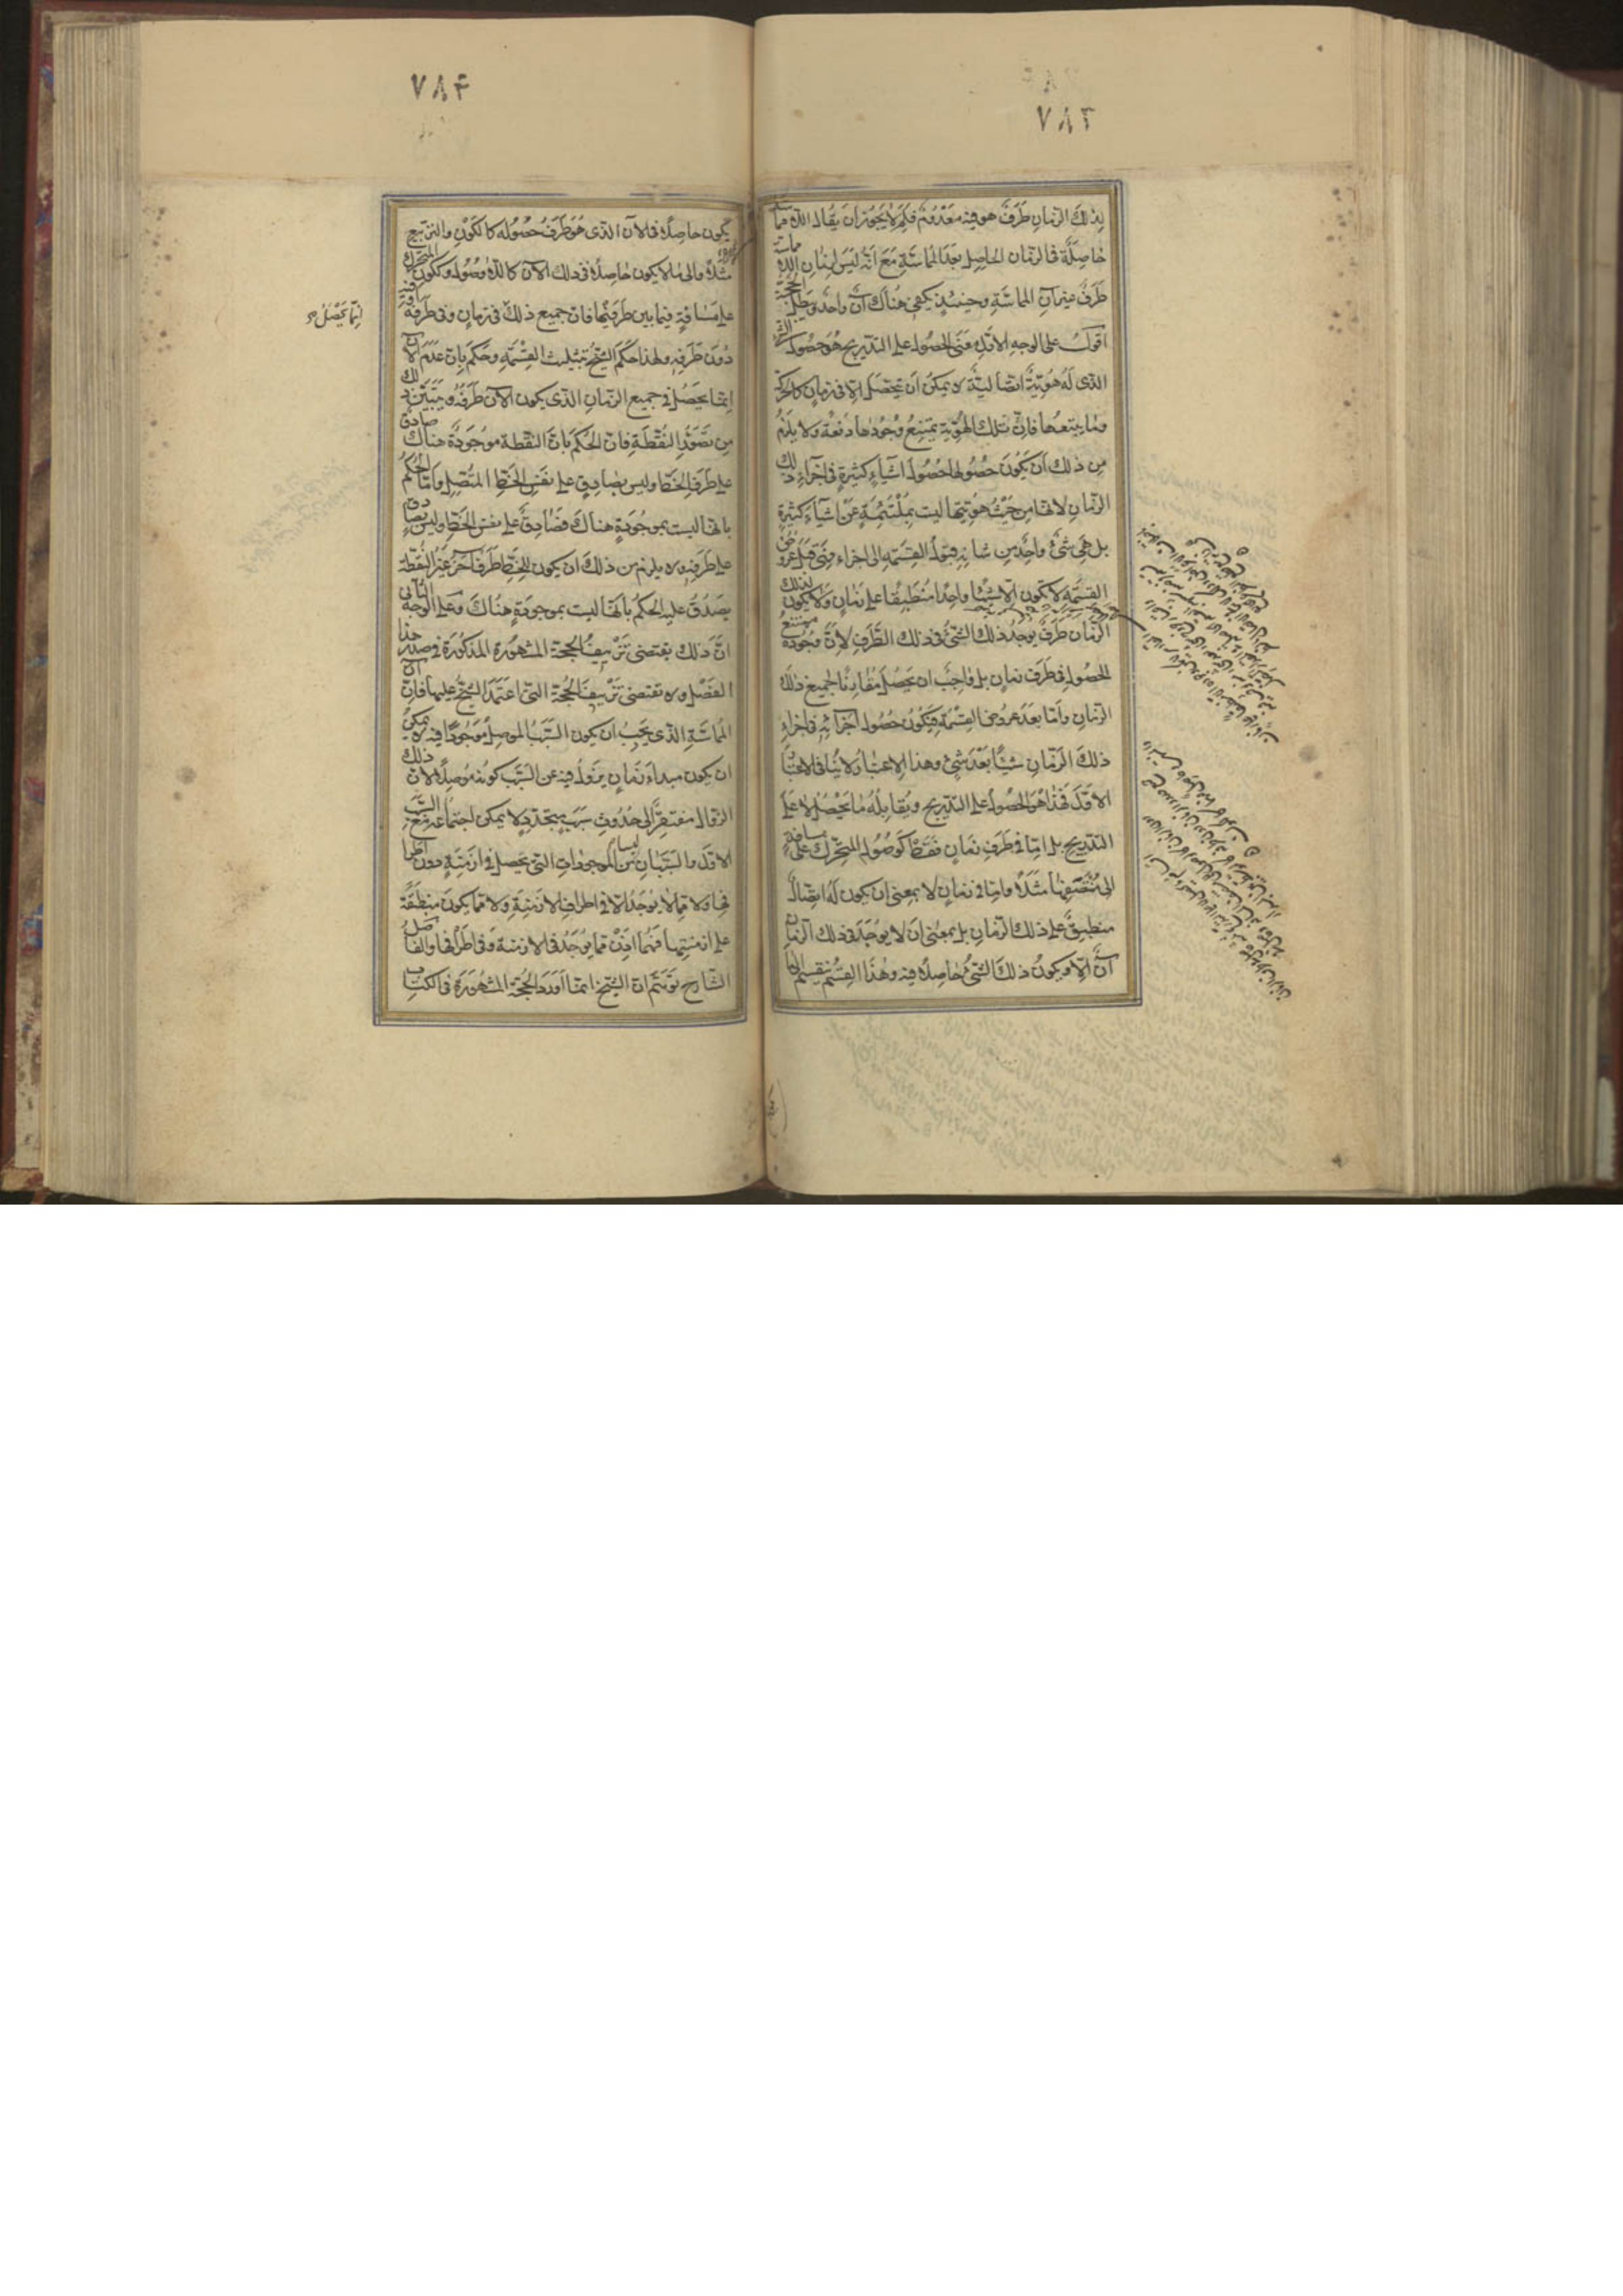 ٧٨٣
لذلك الزمان طرف هو فيه معدوم فلم لا يجوز ان يقال اللامماسة
حاصلة فى الزمان الحاصل بعد المماسة مع انه ليس لزمان اللامماسة
طرف غير آن المماسة وحينئذ يكفى هناك آن واحد وتبطل الحجة
اقول على الوجه الاول معنى الحصول على التدريج هو حصول الشئ
الذى له هوية اتصالية لا يمكن ان تحصل الا فى زمان كالحركة
وما يتبعها فان تلك الهوية يمتنع وجودها دفعة ولا يلزم
من ذلك ان يكون حصولها حصول اشياء كثيرة فى اجزاء ذلك
الزمان لانها من حيث هويتها ليست بملتئمة عن اشياء كثيرة
بل هى شئ واحد من شانه قبول القسمة الى اجزاء فهى قبل عروض
القسمة لا تكون الا شيئا واحدا منطبقا على زمان ولا يكون لذلك
الزمان طرف يوجد ذلك الشئ فى ذلك الطرف لان وجوده ممتنع
الحصول فى طرف زمان بل واجب ان يحصل مقارنا لجميع ذلك
الزمان واما بعد عروض القسمة فيكون حصول اجزائه فى اجزاء
ذلك الزمان شيئا بعد شئ وهذا الاعتبار لا ينافى الاعتبار
الاول فهذا هو الحصول على التدريج ويقابله ما يحصل لا على
التدريج بل اما فى طرف زمان فقط كوصول المتحرك على مسافة
الى منتصفها مثلا واما فى زمان لا بمعنى ان يكون له اتصال
منطبق على ذلك الزمان بل بمعنى ان لا يوجد فى ذلك الزمان
آن الا ويكون ذلك الشئ حاصلا فيه وهذا القسم ينقسم الى ما
٧٨۴
يكون حاصلا فى الآن الذى هو طرف حصوله كالكون والتربيع
مثلا والى ما لا يكون حاصلا فى ذلك الآن كاللاوصول وككون المتحرك
على مسافة فيما بين طرفيها فان جميع ذلك فى زمان وفى طرفه
انما يحصل
دون طرفه ولهذا حكم الشيخ بتثليث القسمة وحكم بان عدم الآن
انما يحصل فى جميع الزمان الذى يكون الآن طرفه ويتبين ذلك
من تصور النقطة فان الحكم بان النقطة موجودة هناك صادق
على طرف الخط وليس بصادق على نفس الخط المتصل واما الحكم
بانها ليست بموجودة هناك فصادق على نفس الخط وليس بصادق
على طرفه ولا يلزم من ذلك ان يكون للخط طرف آخر غير النقطة
يصدق عليه الحكم بانها ليست بموجودة هناك وعلى الوجه الثانى
ان ذلك يقتضى تزييف الحجة المشهورة المذكورة فى صدر هذا
الفصل ولا تقتضى تزييف الحجة التى اعتمد الشيخ عليها فان آن
المماسة الذى يجب ان يكون السبب الموصل موجودا فيه لا يمكن
ان يكون مبداء زمان يزول فيه عن السبب كونه موصلا لان ذلك
الزوال مفتقر الى حدوث سبب يتجدد لا يمكن اجتماعه مع السبب
الاول والسببان ليسا من الموجودات التى تحصل فى ازمنة دون اطرا
فها ولا مما لا يوجد الا فى اطراف الازمنة ولا مما يكون منطبقة
على ازمنتها فهما اذن مما يوجد فى الازمنة وفى اطرافها والفاضل
الشارح توهم ان الشيخ انما اورد الحجة المشهورة فى الكتاب